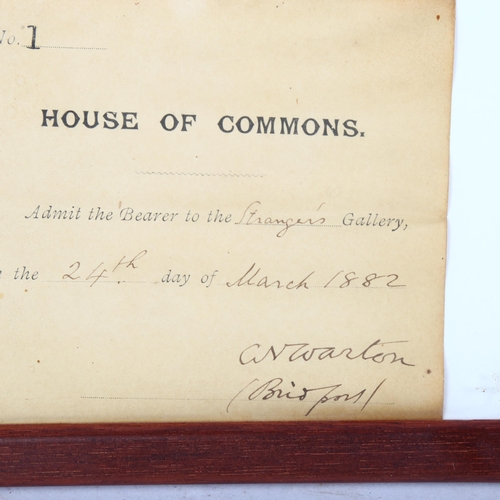 No. 1
HOUSE OF COMMONS.
Admit the Bearer to the Stranger's Gallery,
the 24th day of March 1882
CN Warton
(Bridport)